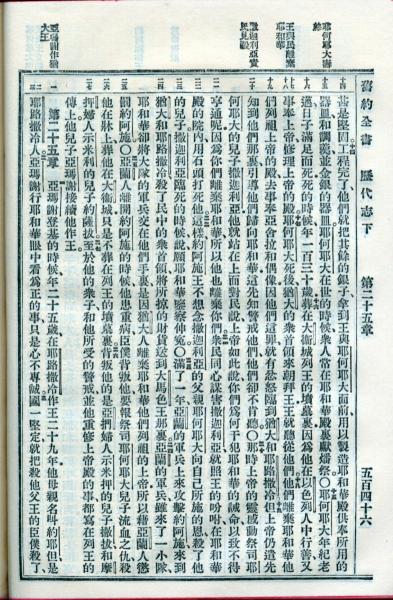 舊約全書 歷代志下 第二十五章 五百四十六
耶何耶大壽終
王與民離棄耶和華
撒迦利亞責民見殺
亞瑪謝作猶大王
十四 甚是堅固工程完了他們就把其餘的銀子拿到王與耶何耶大面前用以製造耶和華殿供奉所用的
器皿和調羹並金銀的器皿耶何耶大在世的時候衆人常在耶和華殿裏獻燔祭〇耶何耶大年紀老
邁日子滿足而死死的時候年一百三十歲葬在大衛城列王的墳墓裏因爲他在以色列人中行善又
事奉上帝修理上帝的殿耶何耶大死後猶大的衆首領來朝拜王王就聽從他們他們離棄耶和華他
們列祖上帝的殿去事奉亞舍拉和偶像因他們這罪就有忿怒臨到猶大和耶路撒冷但上帝仍遣先
知到他們那裏引導他們歸向耶和華這先知警戒他們他們卻不肯聽〇那時上帝的靈感動祭司耶
何耶大的兒子撒迦利亞他就站在上面對民說上帝如此說你們爲何干犯耶和華的誡命以致不得
亨通呢因爲你們離棄耶和華所以他也離棄你們衆民同心謀害撒迦利亞就照王的吩咐在耶和華
殿的院內用石頭打死他這樣約阿施王不想念撒迦利亞的父親耶何耶大向自己所施的恩殺了他
的兒子撒迦利亞臨死的時候說願耶和華鑒察伸冤〇滿了一年亞蘭的軍兵上來攻擊約阿施來到
猶大和耶路撒冷殺了民中的衆首領將所掠的財貨送到大馬色王那裏亞蘭的軍兵雖來了一小隊
耶和華卻將大隊的軍兵交在他們手裏是因猶大人離棄耶和華他們列祖的上帝所以藉亞蘭人懲
罰約阿施亞蘭人離開約阿施的時候他患重病臣僕背叛他要報祭司耶何耶大兒子流血之仇殺
他在牀上葬他在大衛城只是不葬在列王的墳墓裏背叛他的是亞捫婦人示米押的兒子撒拔和摩
押婦人示米利的兒子約薩拔至於他的衆子和他所受的警戒並他重修上帝殿的事都寫在列王的
傳上他兒子亞瑪謝接續他作王
一 第二十五章 亞瑪謝登基的時候年二十五歲在耶路撒冷作王二十九年他母親名叫約耶但是
耶路撒冷人亞瑪謝行耶和華眼中看爲正的事只是心不專誠國一堅定就把殺他父王的臣僕殺了